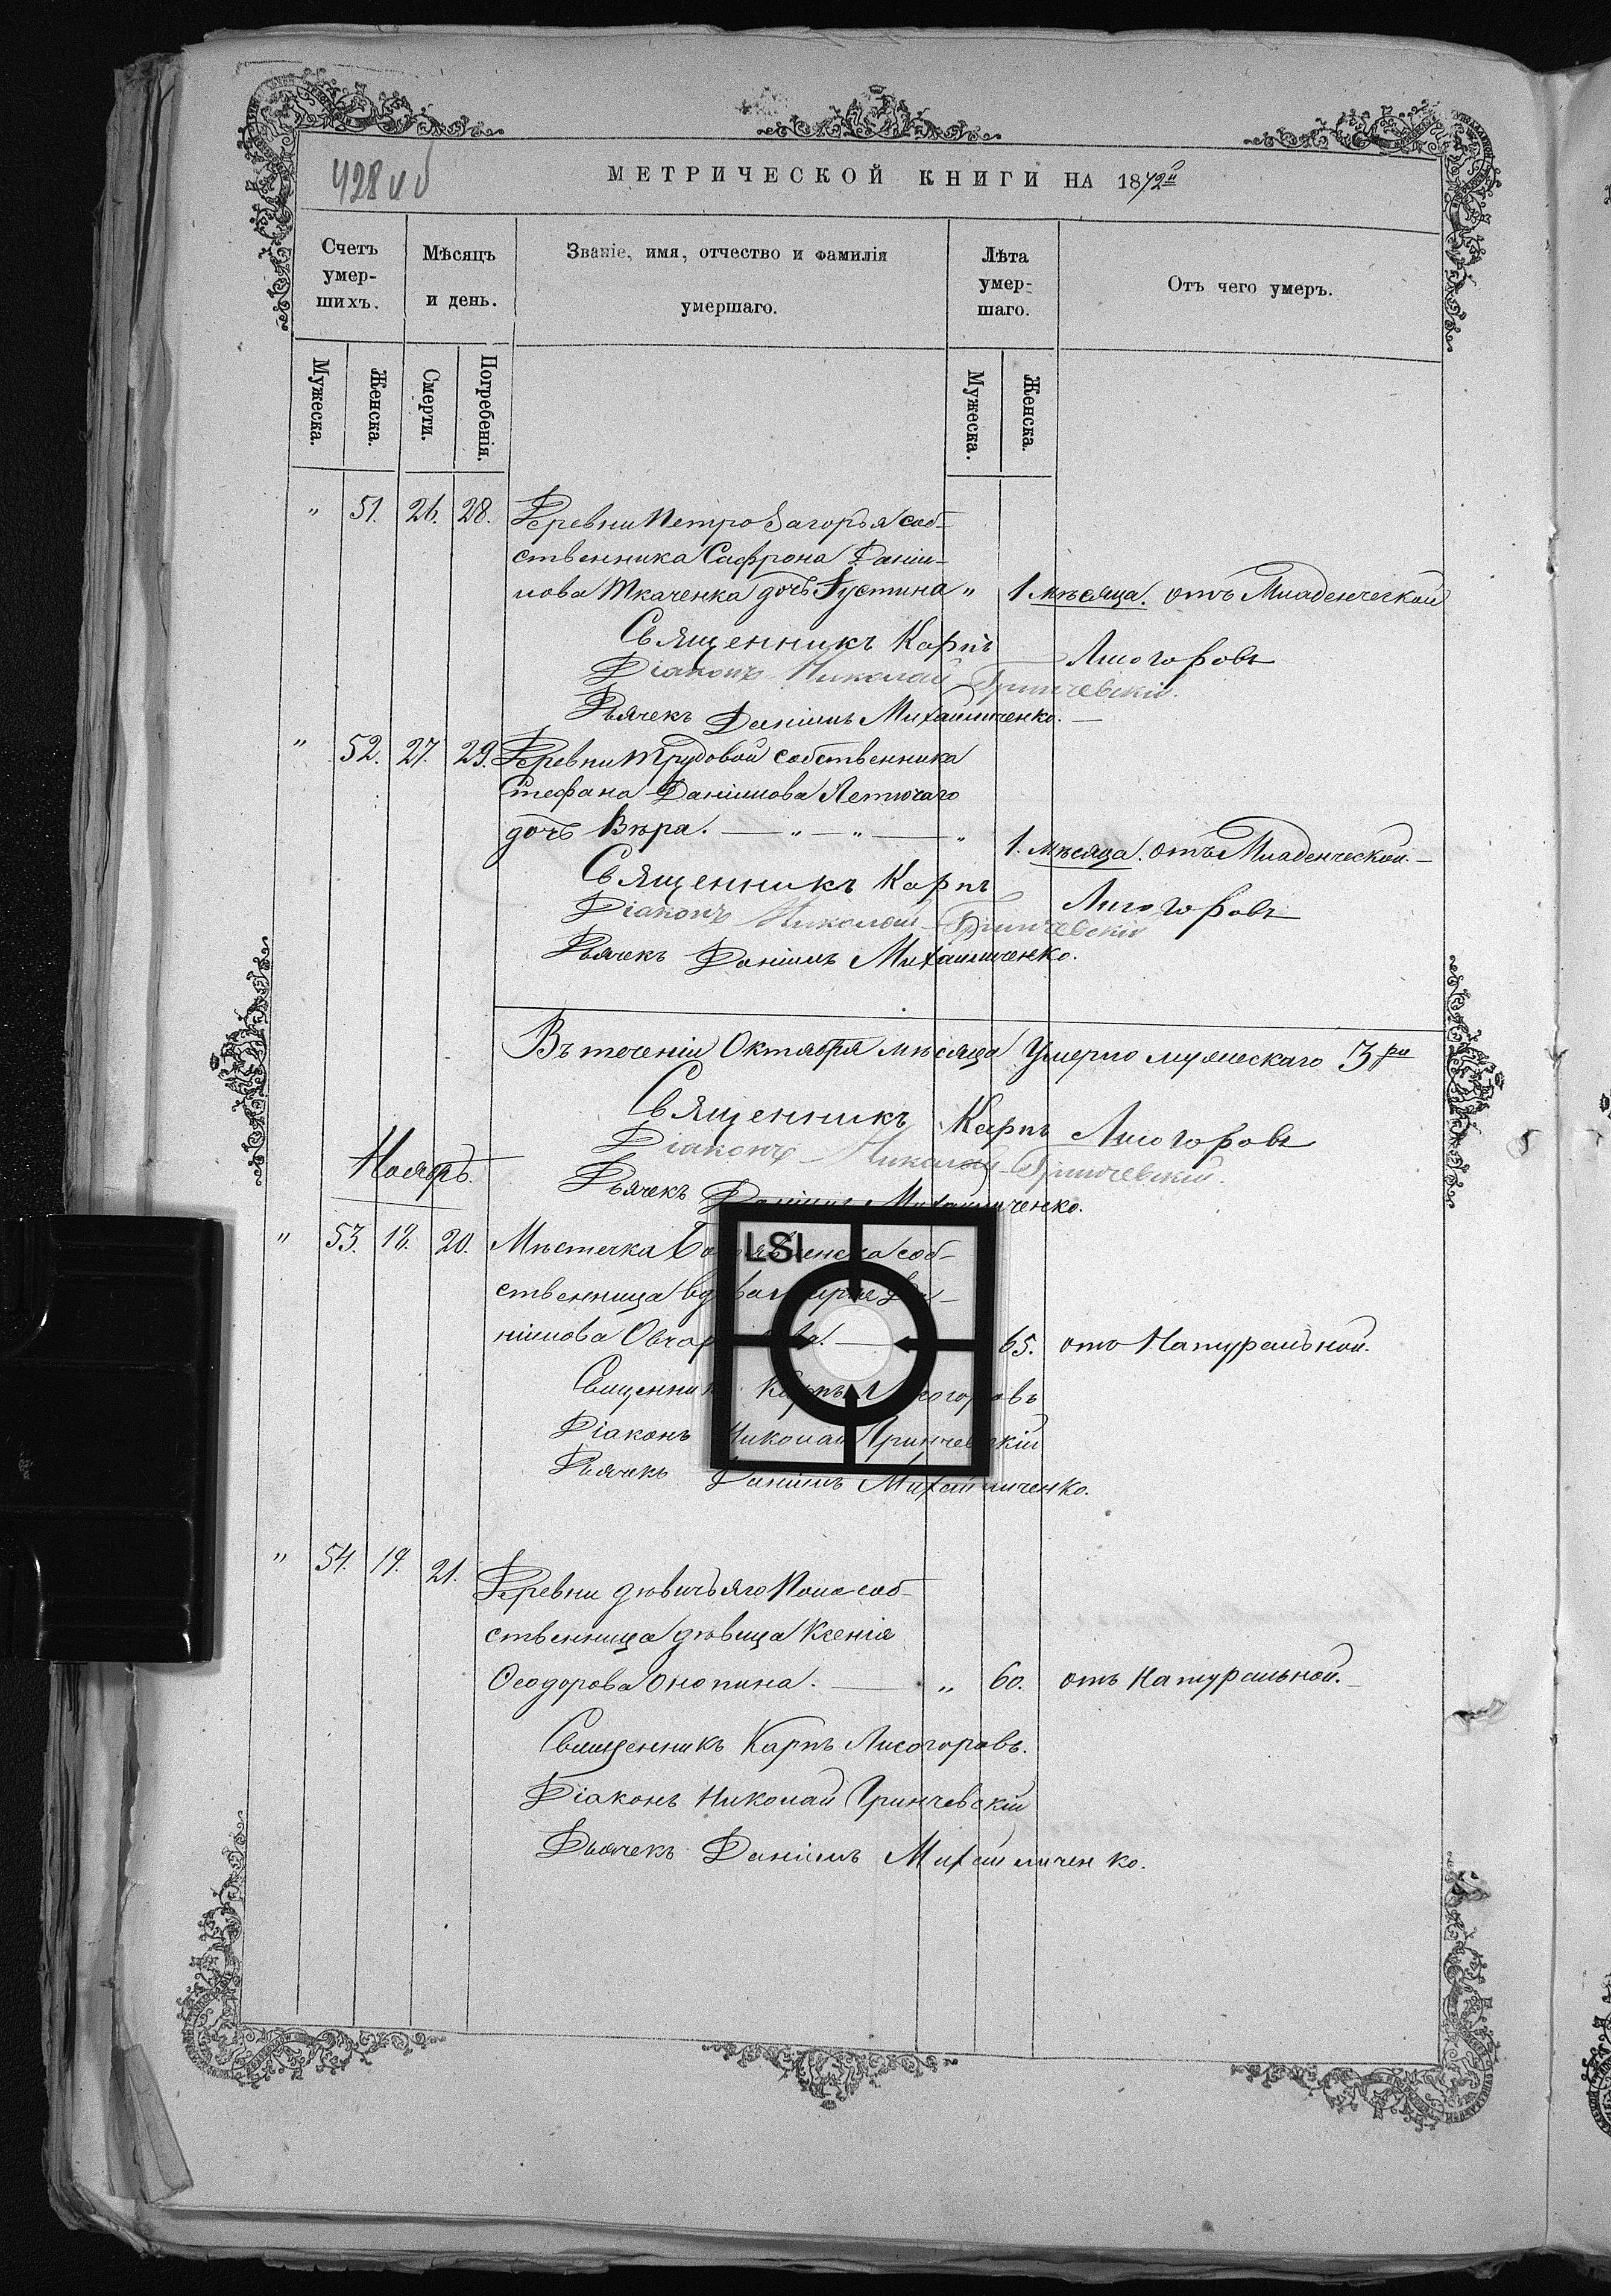 428 об
МЕТРИЧЕСКОЙ КНИГИ НА 1872й
Счетъ умер-шихъ.
Мѣсяцъ и день.
Званіе, имя, отчество и фамилія умершаго.
Лѣта умер-шаго.
Отъ чего умеръ.
Мужеска.
Женска.
Смерти.
Погребенія.
Мужеска.
Женска.
" 51. 26. 28. Деревни Петро Загорья соб-
ственника Сафрона Даніи-
лова Ткаченка дочь Іустина " 1 мѣсяца. отъ Младенческой
Священникъ Карпъ Лисогоровъ
Діаконъ Николай Гринчевскій.
Дьячекъ Даніилъ Михайличенко.
" 52. 27. 29. Деревни Трудовой собственника
Стефана Даніилова Летючаго
дочь Вѣра. — " — " — " 1. мѣсяца. отъ Младенческой. —
Священникъ Карпъ Лисогоровъ
Діаконъ Николай Гринчевскій
Дьячекъ Даніилъ Михайличенко.
Въ теченіи Октября мѣсяца Умерло мужескаго 3ри
Священникъ Карпъ Лисогоровъ
Діаконъ Николай Гринчевскій.
Ноябрь.
Дьячекъ Даніилъ Михайличенко.
LSI
" 53. 18. 20. Мѣстечка соб-
ственница вдова Да-
ніилова 65. отъ Натуральной.
Священникъ Карпъ Лисогоровъ
Діаконъ Николай Гринчевскій
Дьячекъ Даніилъ Михайличенко.
" 54. 19. 21. Деревни дѣвичьяго Поля соб-
ственница дѣвица Ксенія
Ѳеодорова Онопина. — " 60. отъ Натуральной. —
Священникъ Карпъ Лисогоровъ.
Діаконъ Николай Гринчевскій
Дьячекъ Даніилъ Михайличенко.